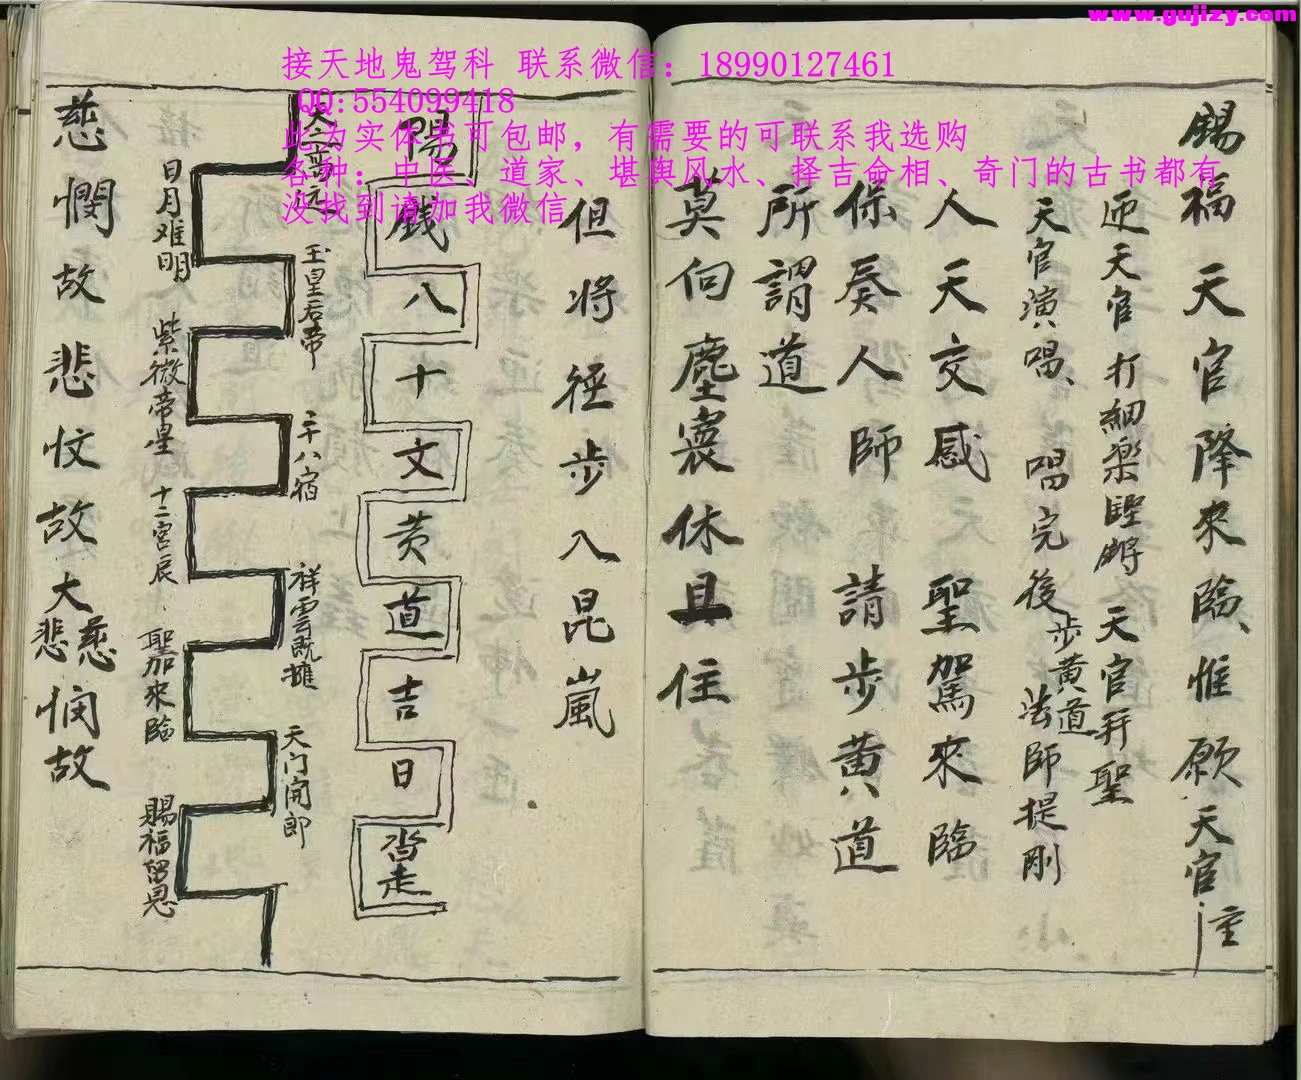 www.gujizy.com
接天地鬼驾科 联系微信：18990127461
QQ:554099418
此为实体书可包邮，有需要的可联系我选购
各种：中医、道家、堪舆风水、择吉命相、奇门的古书都有
没找到请加我微信
錫福天官降來臨、惟願天官
迎天官打細樂 天官拜聖
天官演唱、唱完後步黄道法師提剛
人天交感 聖駕來臨
保奏人師 請步黄道
所謂道
莫向塵寰休且住
但將徑步入昆嵐
陽戲八十文黄道吉日
玉皇君帝
二十八宿
祥雲既擁
天门開郎
日月难明
紫微帝星
十二宫辰
聖加來臨
賜福留恩
慈憫故悲忟故大慈悲悯故